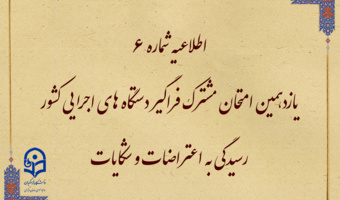 اطلاعیه شماره ۶
یازدهمین امتحان مشترک فراگیر دستگاه های اجرایی کشور
رسیدگی به اعتراضات و شکایات